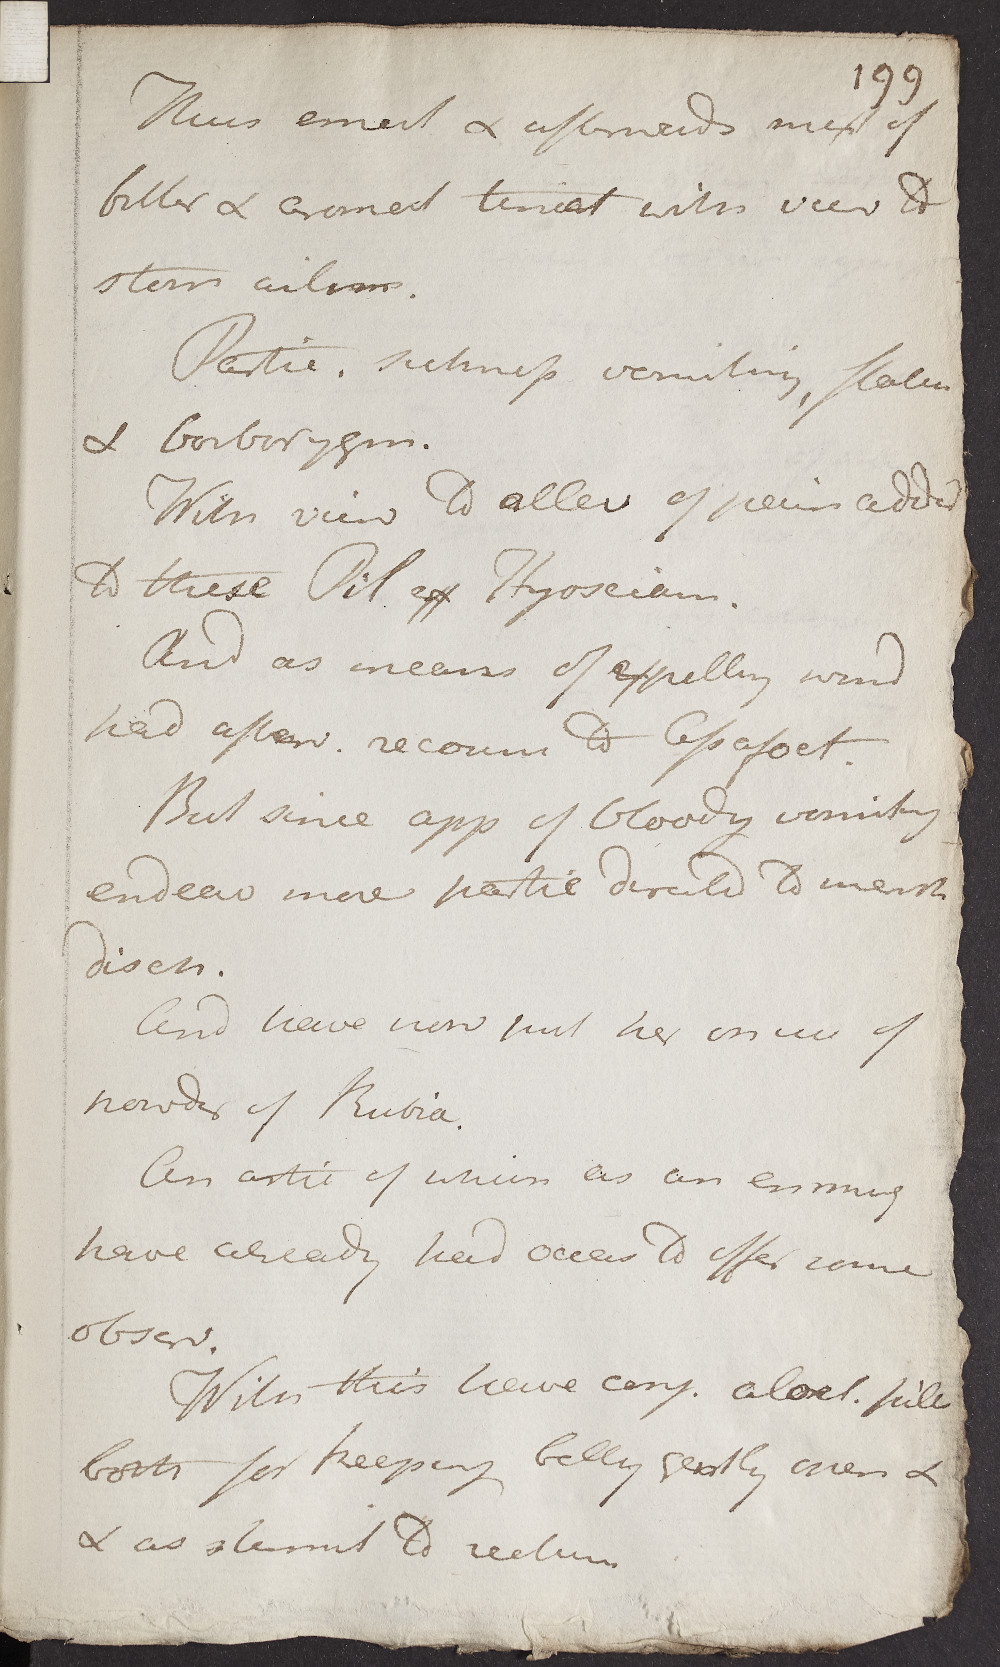 199
Thus emet & afterwards mixt of
bitter & aromat tinct with view to
stom ailmts.
Partic. sickness vomiting, flatu
& borborygm.
With view to allev of pain added
to these Pil eff Hyosciam.
And as means of expelling wind
had afterw. recourse to Assafoet.
But since app of bloody vomiting
endeav more partic directed to menst
disch.
And have now put her on use of
powder of Rubia.
An artic of which as an emmenag
have already had occas to offer some
observ.
With this have conj. aloet. pill
both for keeping belly gently open &
& as stimul to rectum